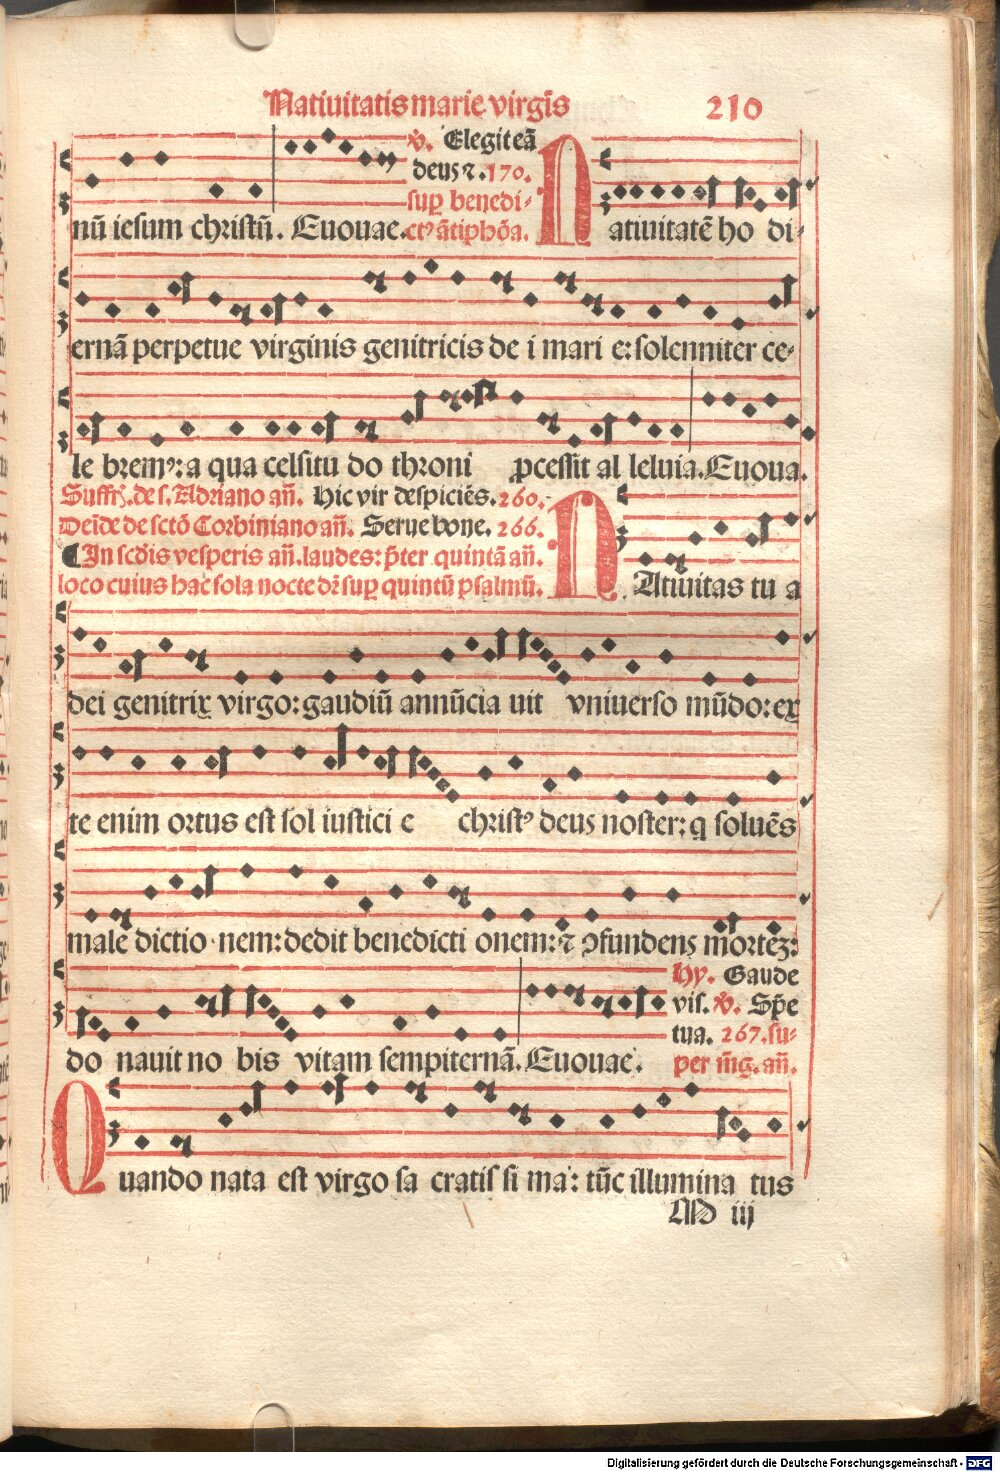 Natiuitatis marie virgīs 210
nū iesum christū. Euouae. ℣. Elegit eā
deus ⁊. 170.
sup benedi-
ctꝰ ātiphōa.
Natiuitatē ho di-
ernā perpetue virginis genitricis de i mari e: solenniter ce-
le bremꝰ: a qua celsitu do throni ꝓcessit al leluia. Euoua.
Suffrꝭ. de s. Adriano añ. Hic vir despiciēs. 260.
Deīde de sctō Corbiniano añ. Serue bone. 266.
¶ In scdis vesperis añ. laudes: p̄ter quintā añ.
loco cuius hac sola nocte dr̄ sup quintū psalmū.
NAtiuitas tu a
dei genitrix virgo: gaudiū annūcia uit vniuerso mūdo: ex
te enim ortus est sol iustici e christꝰ deus noster: q soluēs
male dictio nem: dedit benedicti onem: ⁊ ꝯfundens mortēꝫ:
do nauit no bis vitam sempiternā. Euouae. Hy. Gaude
vis. ℣. Sp̄e
tua. 267. su-
per m̄g. añ.
Quando nata est virgo sa cratis si ma: tūc illumina tus
Dd iij
Digitalisierung gefördert durch die Deutsche Forschungsgemeinschaft - DFG